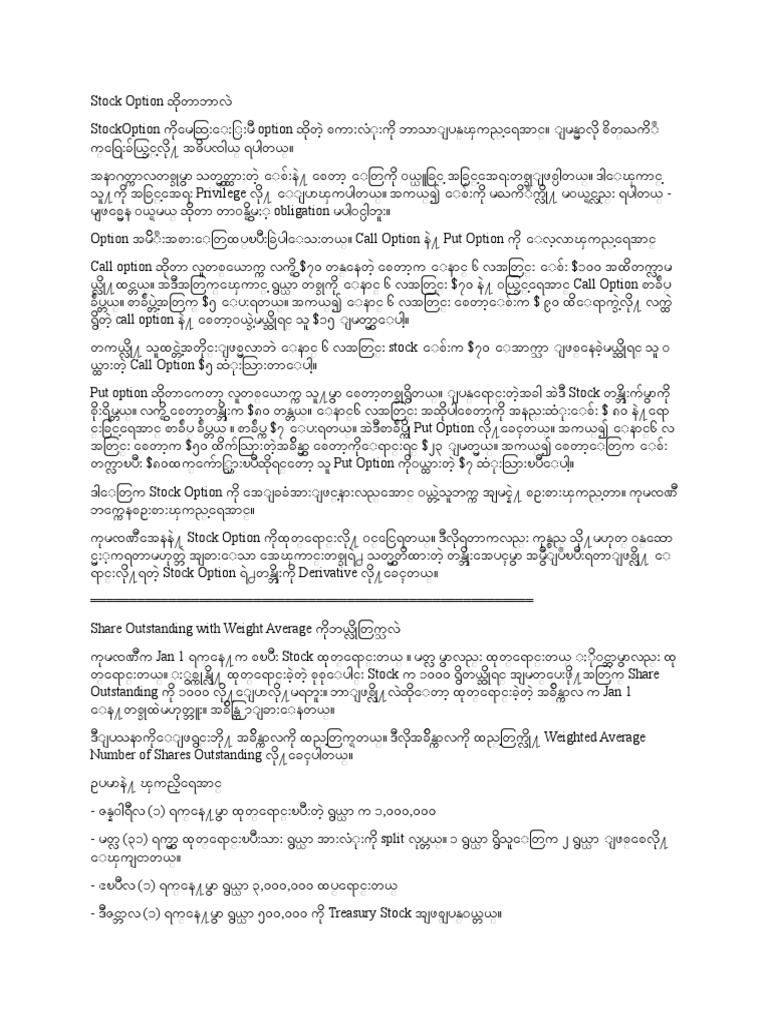 Stock Option ဆိုတာဘာလဲ
StockOption ကိုမေဆြးေႏြးမီ option ဆိုတဲ့ စကားလံုးကို ဘာသာျပန္ၾကည့္ရေအာင္။ ျမန္မာလို စိတ္ႀကိဳ
က္ေရြးခ်ယ္ခြင့္လို႔ အဓိပၸါယ္ ရပါတယ္။
အနာဂတ္ကာလတစ္ခုမွာ သတ္မွတ္ထားတဲ့ ေစ်းနဲ႔ စေတာ့ ေတြကို ဝယ္ယူခြင့္ အခြင့္အေရးတစ္ခုျဖစ္ပါတယ္။ ဒါေၾကာင့္
သူ႔ကို အခြင့္အေရး Privilege လို႔ ေျပာၾကပါတယ္။ အကယ္၍ ေစ်းကို မႀကိဳက္လို႔ မဝယ္ရင္လည္း ရပါတယ္ -
မျဖစ္မေန ဝယ္ရမယ္ ဆိုတာ တာဝန္ရွိမႈ obligation မပါဝင္ပါဘူး။
Option အမ်ိဳးအစားေတြထပ္ၿပီးခြဲပါေသးတယ္။ Call Option နဲ႔ Put Option ကို ေလ့လာၾကည့္ရေအာင္
Call option ဆိုတာ လူတစ္ေယာက္က လက္ရွိ $၇၀ တန္ေနတဲ့ စေတာ့က ေနာင္ ၆ လအတြင္း ေစ်း $၁၀၀ အထိတက္လာမ
ယ္လို႔ထင္တယ္။ အဲဒီအတြက္ေၾကာင့္ ရွယ္ယာ တစ္ခုကို ေနာင္ ၆ လအတြင္း $၇၀ နဲ႔ ဝယ္ခြင့္ရေအာင္ Call Option စာခ်ဳပ္
ခ်ဳပ္တယ္။ စာခ်ဳပ္တဲ့အတြက္ $၅ ေပးရတယ္။ အကယ္၍ ေနာင္ ၆ လအတြင္း စေတာ့ေစ်းက $ ၉၀ ထိေရာက္ခဲ့လို႔ လက္ထဲ
ရွိတဲ့ call option နဲ႔ စေတာ့ဝယ္ခဲ့မယ္ဆိုရင္ သူ $၁၅ ျမတ္မွာေပါ့။
တကယ္လို႔ သူထင္တဲ့အတိုင္းျဖစ္မလာဘဲ ေနာင္ ၆ လအတြင္း stock ေစ်းက $၇၀ ေအာက္သာ ျဖစ္ေနခဲ့မယ္ဆိုရင္ သူ ဝ
ယ္ထားတဲ့ Call Option $၅ ဆံုးသြားတာေပါ့။
Put option ဆိုတာကေတာ့ လူတစ္ေယာက္က သူ႔မွာ စေတာ့တစ္ခုရွိတယ္။ ျပန္ေရာင္းတဲ့အခါ အဲဒီ Stock တန္ဖိုးက်မွာကို
စိုးရိမ္တယ္။ လက္ရွိ စေတာ့တန္ဖိုးက $၈၀ တန္တယ္။ ေနာင္၆ လအတြင္း အဆိုပါစေတာ့ကို အနည္းဆံုးေစ်း $ ၈၀ နဲ႔ေရာ
င္းခြင့္ရေအာင္ စာခ်ဳပ္ ခ်ဳပ္တယ္ ။ စာခ်ဳပ္က $၇ ေပးရတယ္။ အဲဒီစာခ်ဳပ္ကို Put Option လို႔ေခၚတယ္။ အကယ္၍ ေနာင္၆ လ
အတြင္း စေတာ့က $၅၀ ထိက်သြားတဲ့အခ်ိန္မွာ စေတာ့ကိုေရာင္းရင္ $၂၃ ျမတ္မယ္။ အကယ္၍ စေတာ့ေတြက ေစ်း
တက္လာၿပီး $၈၀ထက္ေက်ာ္သြားၿပီဆိုရင္ေတာ့ သူ Put Option ကိုဝယ္ထားတဲ့ $၇ ဆံုးသြားၿပီေပါ့။
ဒါေတြက Stock Option ကို အေျခခံအားျဖင့္နားလည္ေအာင္ ဝယ္တဲ့သူဘက္က အျမင္နဲ႔ စဥ္းစားၾကည့္တာ။ ကုမၸဏီ
ဘက္ကေနစဥ္းစားၾကည့္ရေအာင္။
ကုမၸဏီအေနနဲ႔ Stock Option ကိုထုတ္ေရာင္းလို႔ ဝင္ေငြရတယ္။ ဒီလိုရတာကလည္း ကုန္စည္ သို႔မဟုတ္ ဝန္ေဆာ
င္မႈ႕ကရတာမဟုတ္ဘဲ အျခားေသာ အေၾကာင္းတစ္ခုရဲ႕ သတ္မွတ္ထားတဲ့ တန္ဖိုးအေပၚမွာ အမွီျပဳၿပီးရတာျဖစ္လို႔ ေ
ရာင္းလို႔ရတဲ့ Stock Option ရဲ႕တန္ဖိုးကို Derivative လို႔ေခၚတယ္။
=========================================================
Share Outstanding with Weight Average ကိုဘယ္လိုတြက္သလဲ
ကုမၸဏီက Jan 1 ရက္ေန႔က စၿပီး Stock ထုတ္ေရာင္းတယ္ ။ မတ္လ မွာလည္း ထုတ္ေရာင္းတယ္ ႏိုဝင္ဘာမွာလည္း ထု
တ္ေရာင္းတယ္။ ႏွစ္ကုန္လို႔ ထုတ္ေရာင္းခဲ့တဲ့ စုစုေပါင္း Stock က ၁၀၀၀ ရွိတယ္ဆိုရင္ အျမတ္ေပးဖို႔အတြက္ Share
Outstanding ကို ၁၀၀၀ လို႔ေျပာလို႔မရဘူး။ ဘာျဖစ္လို႔လဲဆိုေတာ့ ထုတ္ေရာင္းခဲ့တဲ့ အခ်ိန္ကာလ က Jan 1
ေန႔တစ္ခုထဲမဟုတ္ဘူး။ အခ်ိန္ကြာျခားေနတယ္။
ဒီျပသနာကိုေျဖရွင္းဘို႔ အခ်ိန္ကာလကို ထည့္တြက္ရတယ္။ ဒီလိုအခ်ိန္ကာလကို ထည့္တြက္လို႔ Weighted Average
Number of Shares Outstanding လို႔ေခၚပါတယ္။
ဥပမာနဲ႔ ၾကည့္ရေအာင္
- ဇန္နဝါရီလ (၁) ရက္ေန႔မွာ ထုတ္ေရာင္းၿပီးတဲ့ ရွယ္ယာ က ၁,၀၀၀,၀၀၀
- မတ္လ (၃၁) ရက္မွာ ထုတ္ေရာင္းၿပီးသား ရွယ္ယာ အားလံုးကို split လုပ္တယ္။ ၁ ရွယ္ယာ ရွိသူေတြက ၂ ရွယ္ယာ ျဖစ္ေစလို႔
ေၾကျငာတယ္။
- ဧၿပီလ (၁) ရက္ေန႔မွာ ရွယ္ယာ ၃,၀၀၀,၀၀၀ ထပ္ေရာင္းတယ္
- ဒီဇင္ဘာလ (၁) ရက္ေန႔မွာ ရွယ္ယာ ၅၀၀,၀၀၀ ကို Treasury Stock အျဖစ္ျပန္ဝယ္တယ္။